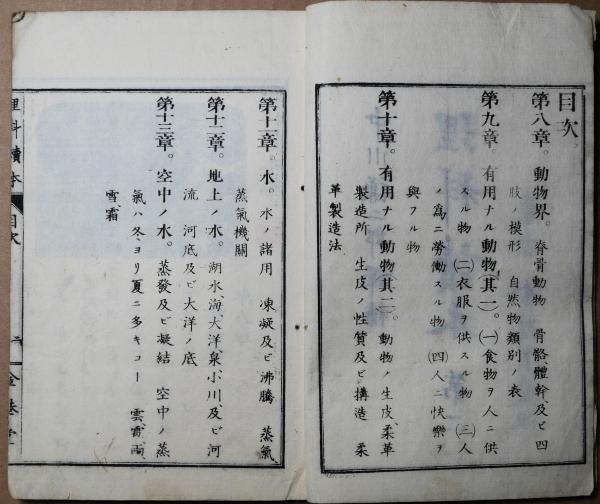 目次
第八章。動物界。脊骨動物 骨骼體幹、及ビ四
肢ノ模形 自然物類別ノ表
第九章。有用ナル動物(其一。)(一)食物ヲ人ニ供
スル物 (二)衣服ヲ供スル物 (三)人
ノ爲ニ勞働スル物 (四)人ニ快樂ヲ
與フル物
第十章。有用ナル動物(其二。)動物ノ生皮、柔革
製造所 生皮ノ性質及ビ搆造 柔
革製造法
第十一章。水。水ノ諸用 凍凝及ビ沸騰 蒸氣、
蒸氣機關
第十二章。地上ノ水。湖水、海、大洋、泉、小川、及ビ河
流 河底及ビ大洋ノ底
第十三章。空中ノ水。蒸發及ビ凝結 空中ノ蒸
氣ハ冬ヨリ夏ニ多キコー 雲、霧、雨、
雪、霜
理科讀本 目次